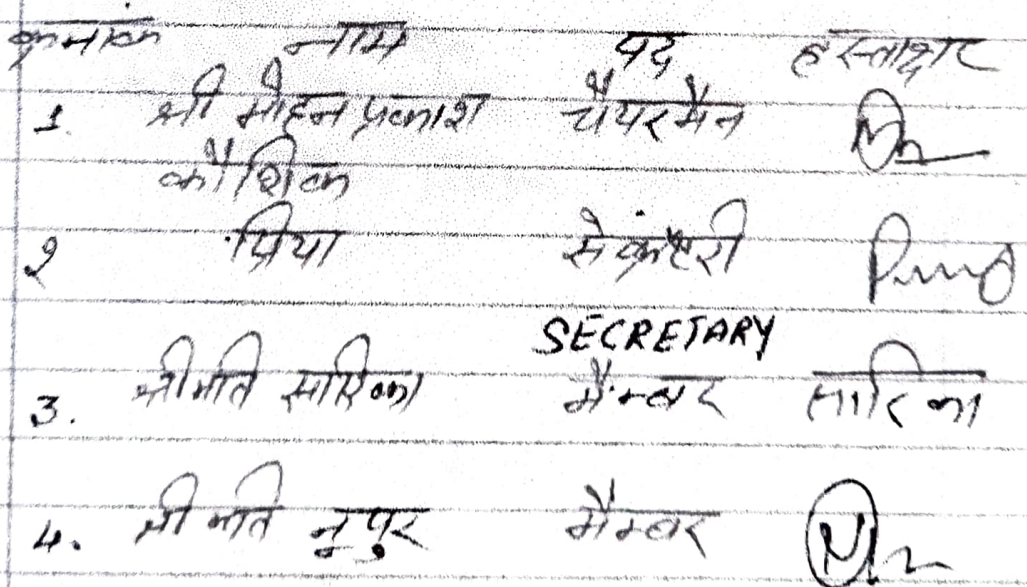 क्रमांक नाम पद हस्ताक्षर
1. श्री मोहन प्रकाश चैयरमैन
कौशिक
2 प्रिया सेक्रेटरी
SECRETARY
3. श्रीमति सारिका मैम्बर सारिका
4. श्रीमति नूपुर मैम्बर